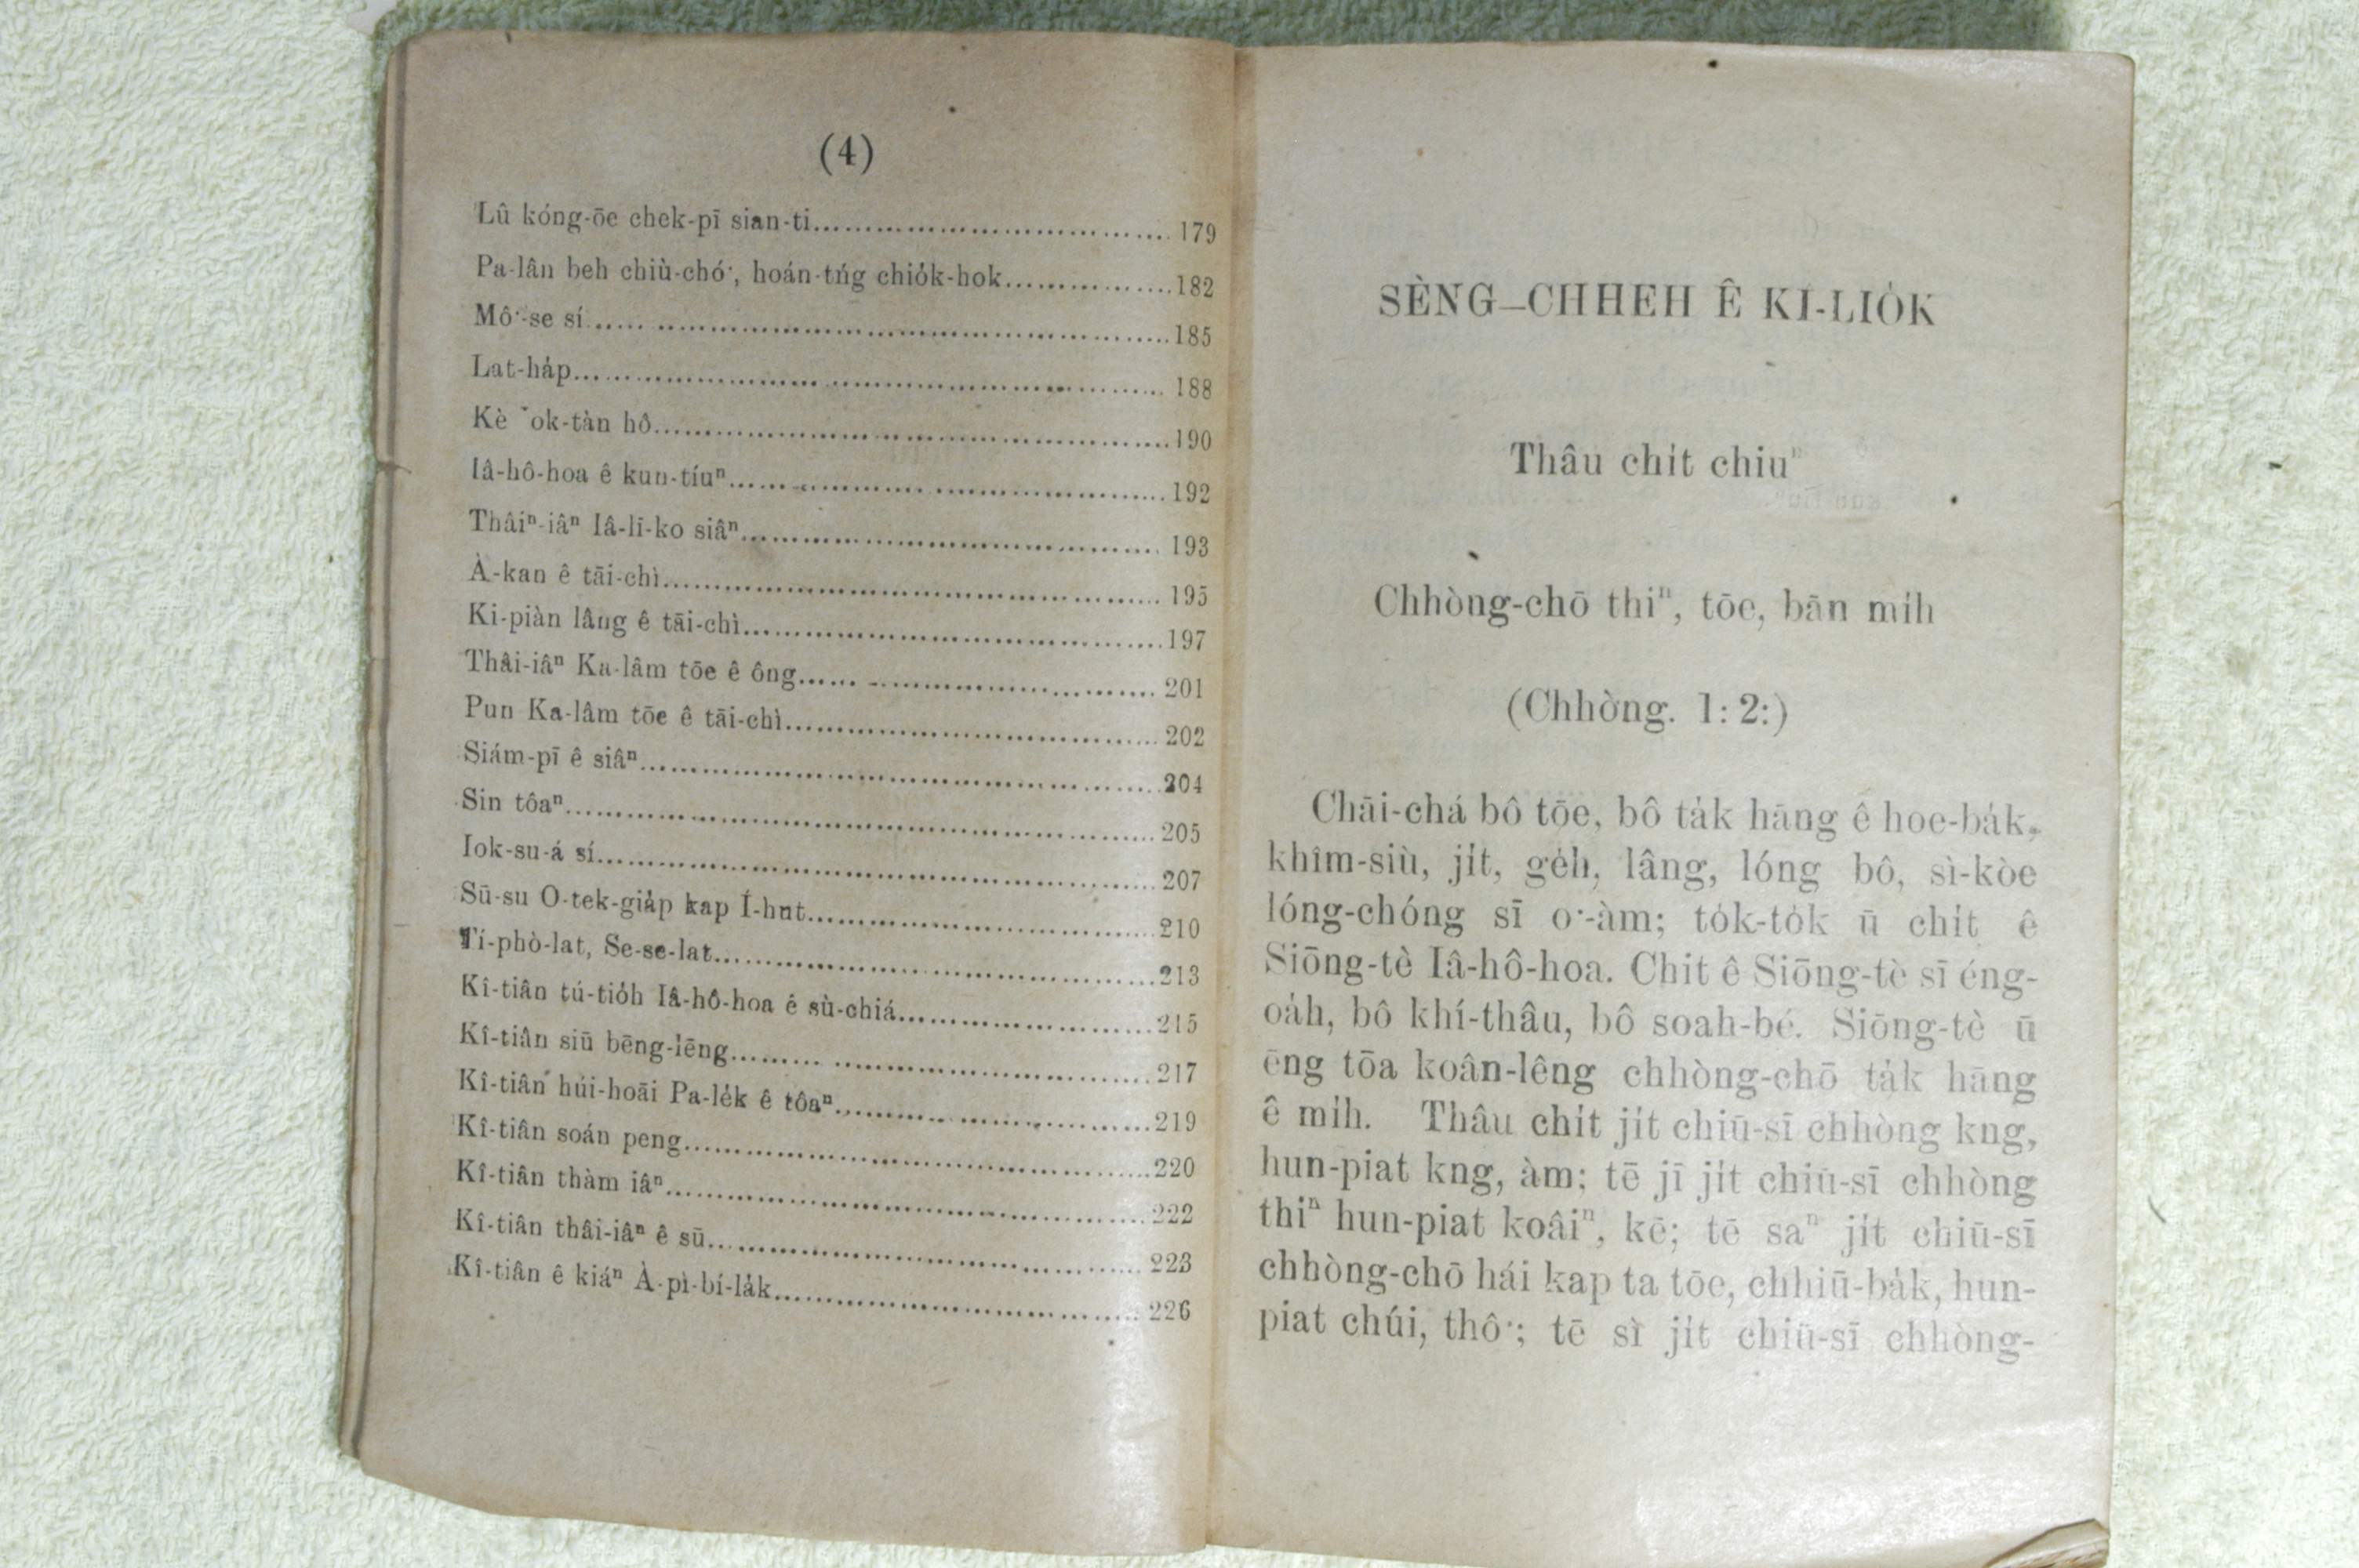 (4)
Lû kóng-ōe chek-pī sian-ti.......... 179
Pa-lân beh chiù-chó͘, hoán-tńg chio̍k-hok.......... 182
Mô͘-se sí.......... 185
Lat-ha̍p.......... 188
Kè ok-tàn hô.......... 190
Iâ-hô-hoa ê kun-tíuⁿ.......... 192
Thâiⁿ-iâⁿ Iâ-lī-ko siâⁿ.......... 193
À-kan ê tāi-chì.......... 195
Ki-piàn lâng ê tāi-chì.......... 197
Thâi-iâⁿ Ka-lâm tōe ê ông.......... 201
Pun Ka-lâm tōe ê tāi-chì.......... 202
Siám-pī ê siâⁿ.......... 204
Sin tôaⁿ.......... 205
Iok-su-á sí.......... 207
Sū-su O-tek-gia̍p kap Í-hut.......... 210
Tí-phò-lat, Se-se-lat.......... 213
Kî-tiân tú-tio̍h Iâ-hô-hoa ê sù-chiá.......... 215
Kî-tiân siū bēng-lēng.......... 217
Kî-tiân húi-hoāi Pa-le̍k ê tôaⁿ.......... 219
Kî-tiân soán peng.......... 220
Kî-tiân thàm iâⁿ.......... 222
Kî-tiân thâi-iâⁿ ê sū.......... 223
Kî-tiân ê kiáⁿ À-pì-bí-la̍k.......... 226
SÈNG-CHHEH Ê KÌ-LIO̍K
Thâu chi̍t chiuⁿ
Chhòng-chō thiⁿ, tōe, bān mi̍h
(Chhòng. 1: 2:)
Chāi-chá bô tōe, bô ta̍k hāng ê hoe-ba̍k,
khîm-siù, ji̍t, ge̍h, lâng, lóng bô, sì-kòe
lóng-chóng sī o͘-àm; to̍k-to̍k ū chi̍t ê
Siōng-tè Iâ-hô-hoa. Chit ê Siōng-tè sī éng-
oa̍h, bô khí-thâu, bô soah-bé. Siōng-tè ū
ēng tōa koân-lêng chhòng-chō ta̍k hāng
ê mi̍h. Thâu chi̍t ji̍t chiū-sī chhòng kng,
hun-piat kng, àm; tē jī ji̍t chiū-sī chhòng
thiⁿ hun-piat koâiⁿ, kē; tē saⁿ ji̍t chiū-sī
chhòng-chō hái kap ta tōe, chhiū-ba̍k, hun-
piat chúi, thô͘; tē sì ji̍t chiū-sī chhòng-